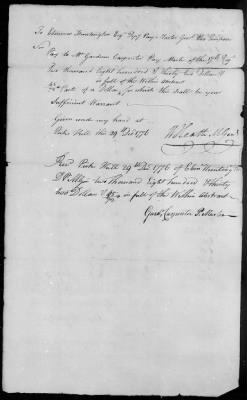 To Ebenezer Huntington Esqr Depy Pay-Master Genl
Sir
Pay to Mr Gardner Carpenter Pay-Master of the 17th Regt
Two thousand Eight hundred & thirty two Dollars &
in full of the within abstract
parts of a Dollar, for which this shall be your
Sufficient Warrant
Given under my hand at
Peeks Kill this 29 Decr 1776
W Heath M Genl
Recd Peeks Kill 29th Decr 1776 of Eben Huntington
D P M Genl two thousand Eight hundred & thirty
two Dollars & in full of the Within abstract
Gardr Carpenter P. Master